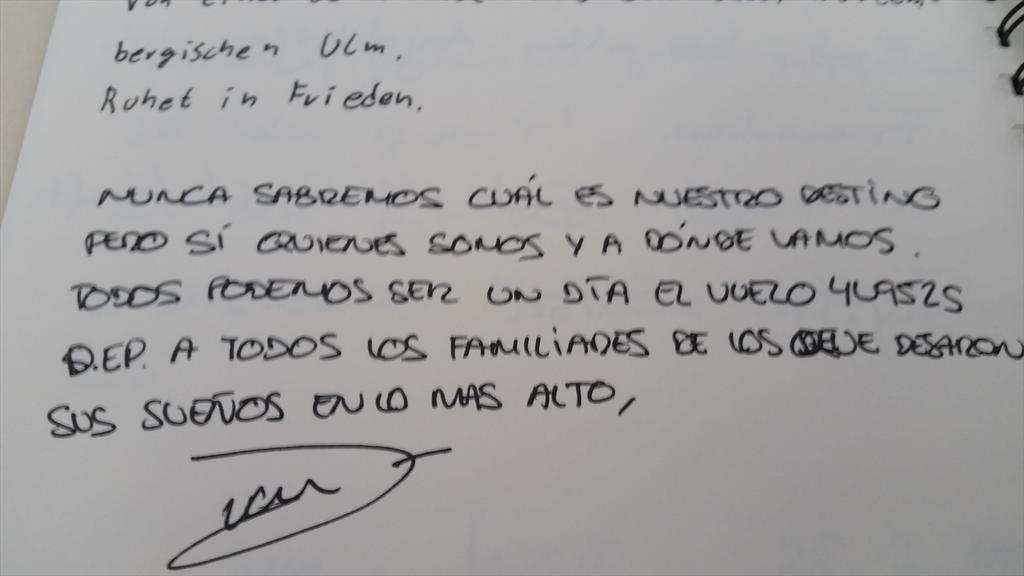 bergischen Ulm.
Ruhet in Frieden.
NUNCA SABREMOS CUÁL ES NUESTRO DESTINO
PERO SÍ QUIENES SOMOS Y A DÓNDE VAMOS.
TODOS PODEMOS SER UN DÍA EL VUELO 4U9525
D.EP. A TODOS LOS FAMILIARES DE LOS QUE DEJARON
SUS SUEÑOS EN LO MAS ALTO,